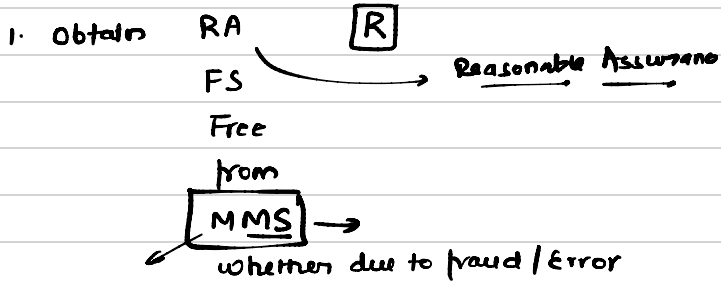 1. Obtain RA R
Reasonable Assurano
FS
Free
from
MMS
whether due to fraud / Error